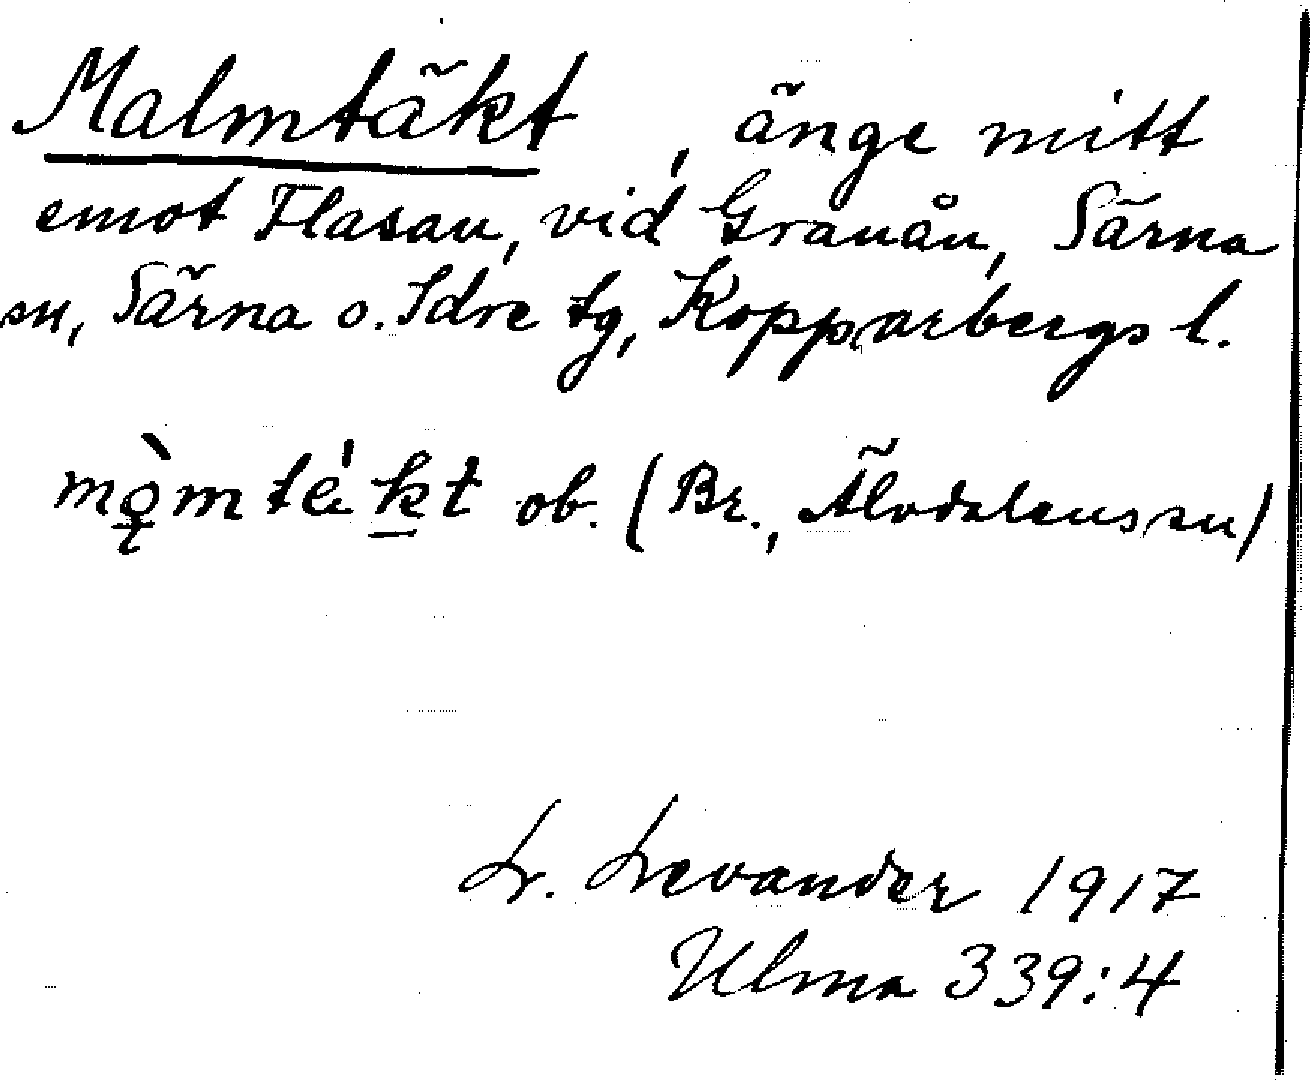 Malmtäkt, änge mitt
emot Flasan, vid Granån, Särna
sn, Särna o. Idre tg, Kopparbergs l.
mǫ̀mtèkt ob. (Br., Älvdalens sn)
L. Levander 1917
Ulma 339:4